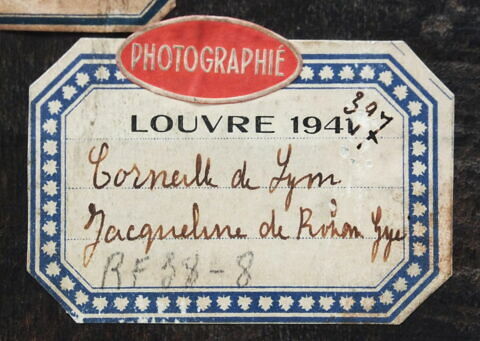 PHOTOGRAPHIÉ
LOUVRE 194
Corneille de Lyon
Jacqueline de Rohan Gye
RF 38-8